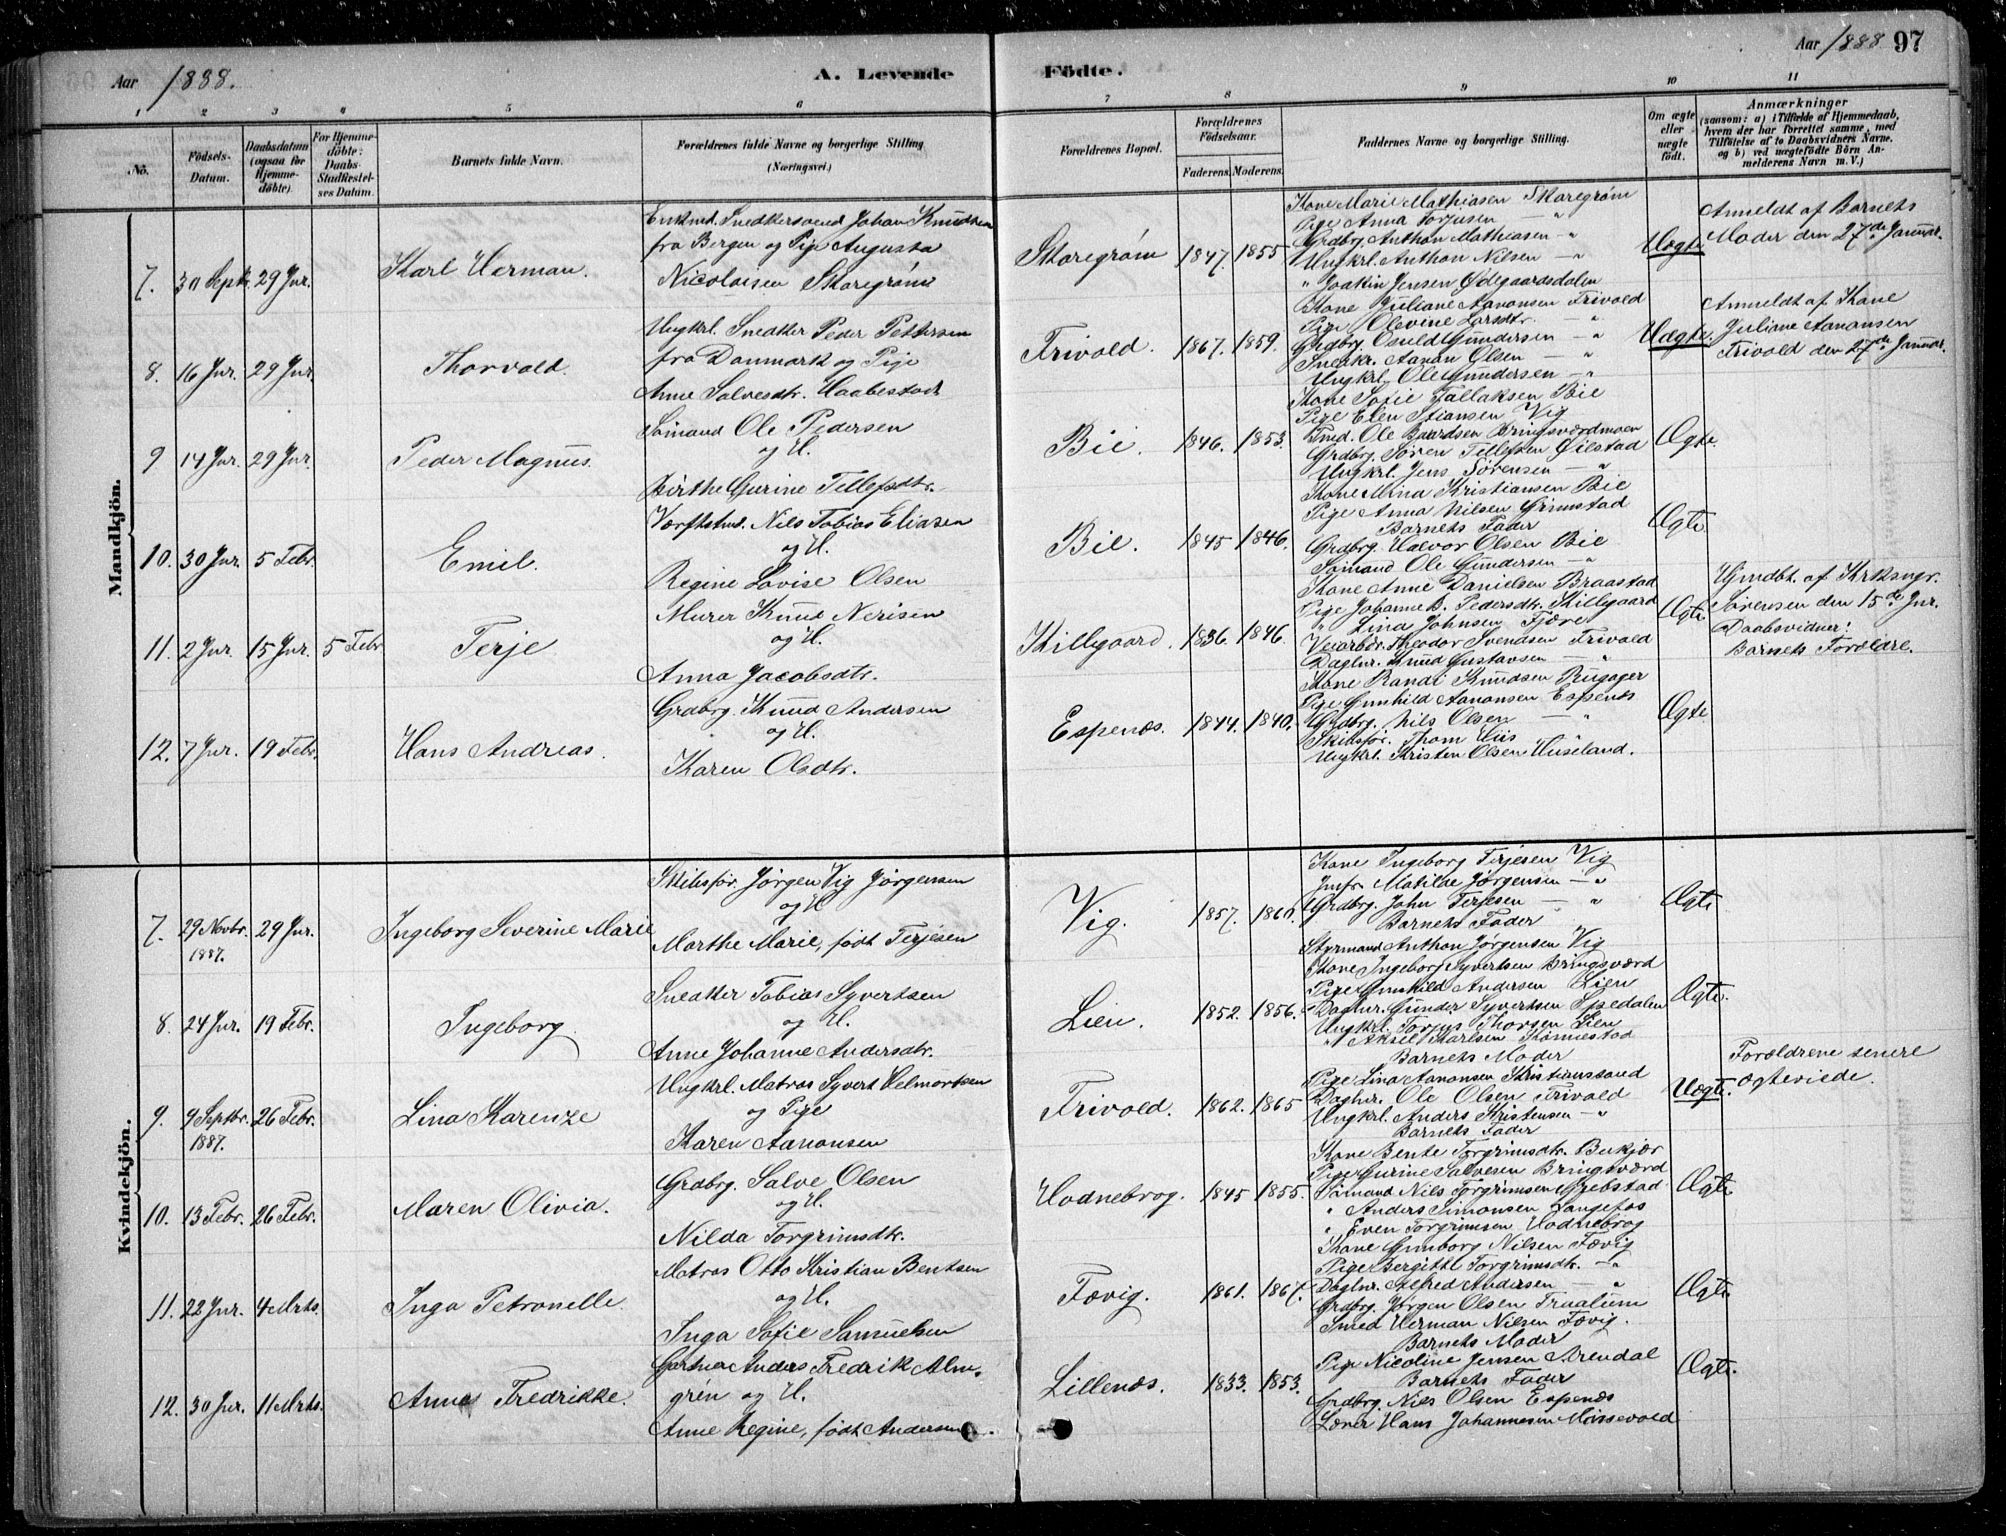 Aar 1888.
A. Levende
Födte.
Aar 1888 97
1 2 3 4 5 6 7 8 9 10 11
No.
Födsels-Datum.
Daabsdatum (ogsaa for Hjemmedöbte).
For Hjemmedöbte: Daabs-Stadfestelses Datum.
Barnets fulde Navn.
Forældrenes fulde Navne og borgerlige Stilling
(Næringsvei.)
Forældrenes Bopæl.
Forældrenes Födselsaar.
Faderens. Moderens.
Faddernes Navne og borgerlige Stilling.
Om ægte eller uægte födt.
Anmærkninger
(saasom: a) i Tilfælde af Hjemmedaab, hvem der har forrettet samme, med Tilföielse af to Daabsvidners Navne. og b) ved uægtefödte Börn Anmelderens Navn m. V.)
Mandkjön.
7. 30 Septr. 29 Jnr.
Karl Herman.
Enkmd. Snedkersvend Johan Knudsen
fra Bergen og Pige Augusta
Nicolaisen Skaregrøm
Skaregrøm 1847. 1855
Kone Marie Mathiasen Skaregrøm
Pige Anna Torjusen — "
Grdbrg. Anthon Mathiasen — "
Ungkrl. Anthon Nilsen — "
" Joakin Jensen Ødegaardsdalen
Uægte
Anmeldt af Barnets
Moder den 27de Januar.
8. 16 Jnr. 29 Jnr.
Thorvald.
Ungkrl. Snedker Peder Pettersen
fra Danmark og Pige
Anne Salvesdtr. Haabestad
Frivold. 1867. 1859.
Kone Juliane Aanonsen Frivold
Pige Olevine Larsdtr. "
Grdbrg. Osuld Gundersen — "
Snedkr. Aanon Olsen — "
Ungkrl. Ole Gundersen — "
Uægte
Anmeldt af Kone
Juliane Aanonsen
Frivold den 27de Januar.
9 14 Jnr. 29 Jnr.
Peder Magnus.
Sømand Ole Pedersen
og H.
Birthe Gurine Tellefsdtr.
Bie. 1846. 1853.
Kone Sofie Tallaksen Bie
Pige Elen Stiansen Vig
Smed. Ole Baardsen Bringsværdmoen
Grdbrg. Søren Tellefsen Øilstad
Ungkrl. Jens Sørensen — "
Ægte
10. 30 Jnr. 5 Febr.
Emil.
Værftstmd. Nils Tobias Eliasen
og H.
Regine Lovise Olsen
Bie. 1845 1846.
Kone Mina Kristiansen Bie
Pige Anna Nilsen Grimstad
Barnets Fader
Grdbrg. Halvor Olsen Bie
Sømand Ole Gundersen — "
Ægte
11. 2 Jnr. 15 Jnr. 5 Febr
Terje
Murer Knud Nerisen
og H.
Anna Jacobsdtr.
Killegaard. 1836. 1846.
Kone Anne Danielsen Braastad
Pige Johanne B. Pedersdtr. Killegaard
" Lina Johnsen Fjære
Veiarbdr. Theodor Svendsen Frivold
Daglnr. Knud Gustavsen — "
Ægte
Hjmdbt. af Krksngr.
Sørensen den 15de Jnr.
Daabsvidner:
Barnets Forældre.
12. 7 Jnr. 19 Febr.
Hans Andreas.
Grdbrg. Knud Andersen
og H.
Karen Olsdtr.
Espenæs. 1844. 1840.
Kone Randi Knudsen Rugager
Pige Gunhild Aanonsen Espenes
Grdbrg. Nils Olsen — "
Skibsfør. Thom Hiis
Ungkrl. Kristen Olsen Huseland.
Ægte
Kvindekjön.
7. 29 Novbr. 1887. 29 Jnr.
Ingeborg Severine Marie
Skibsfør. Jørgen Vig Jørgensen
og H
Marthe Marie, født Terjesen
Vig. 1857. 1860.
Kone Ingeborg Terjesen Vig
Jmfr. Matilde Jørgensen — "
Grdbrg. John Terjesen — "
Barnets Fader
Styrmand Anthon Jørgensen Vig
Ægte
8. 24 Jnr. 19 Febr.
Ingeborg.
Snedker Tobias Syvertsen
og H.
Anne Johanne Andersdtr.
Lien. 1852. 1856.
Kone Ingeborg Syvertsen Bringsværd
Pige Gunhild Andersen Lien
Daglnr. Gunder Syvertsen Spedalen
Ungkrl. Torjus Thorsen Lien
" Aksel Karlsen Rønnestad
Ægte.
9. 9 Septbr. 1887. 26 Febr.
Lina Karenze
Ungkrl. Matros Syvert Helmertsen
og Pige
Karen Aanonsen
Frivold. 1862. 1865
Barnets Moder
Pige Lina Aanonsen Kristianssand
Daglnr. Ole Olsen Frivold
Ungkrl. Anders Kristensen — "
Barnets Fader
Uægte.
Forældrene senere
ægteviede.
10. 13 Febr. 26 Febr.
Maren Olivia.
Grdbrg. Salve Olsen
og H.
Nilda Torgrimsdtr.
Hodnebrog. 1845 1855.
Kone Bente Torgrimsdtr. Bukjær
Pige Gurine Salvesen Bringsværd
Sømand Nils Torgrimsen Grebstad
" Anders Simonsen Langefos
" Even Torgrimsen Hodnebrog
Ægte
11. 22 Jnr. 4 Mrts.
Inga Petronelle.
Matros Otto Kristian Bentsen
og H.
Inga Sofie Samuelsen
Fævig. 1861. 1867.
Kone Gunborg Nilsen Fævig
Pige Bergitte Torgrimsdtr. — "
Daglnr. Alfred Andersen — "
Grdbrg. Jørgen Olsen Trualum
Smed Herman Nilsen Fævig.
Ægte
12. 30 Jnr. 11 Mrts.
Anna Fredrikke.
Gartner Anders Fredrik Alm-
grén og H.
Anne Regine, født Andersen.
Lillenæs. 1833. 1853.
Barnets Moder
Pige Nicoline Jensen Arendal
Barnets Fader
Grdbrg. Nils Olsen Espenæs
Lærer Hans Johannesen Moisevold
Ægte.